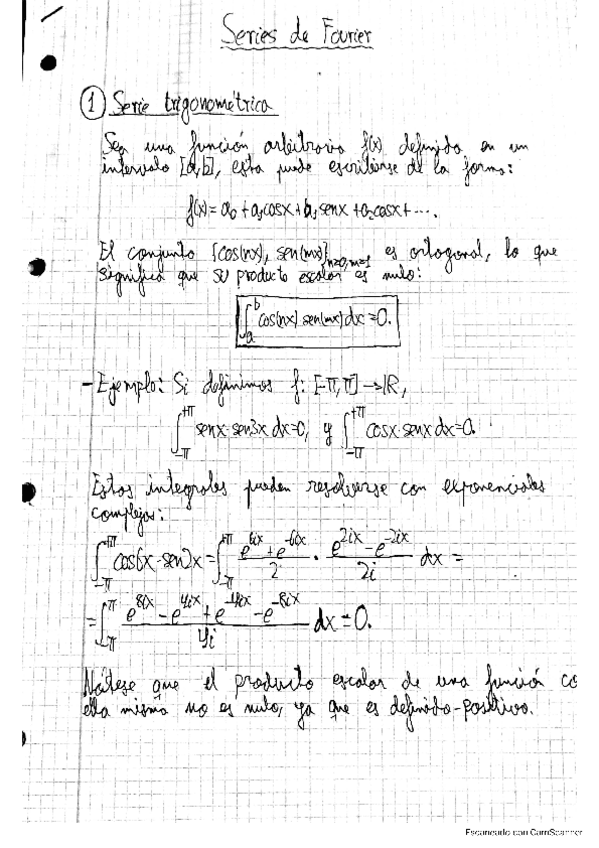 Series de Fourier
① Serie trigonométrica
Sea una función arbitraria f(x) definida en un
intervalo [a,b], esta puede escribirse de la forma:
f(x) = a₀ + a₁cosx + b₁senx + a₂cosx + ....
El conjunto {cos(nx), sen(mx)}ₙ₌₀,ₘ₌₁ es ortogonal, lo que
significa que su producto escalar es nulo:
∫ₐᵇ cos(nx) sen(mx) dx = 0.
- Ejemplo: Si definimos f: [-π,π] → ℝ,
∫₋π^+π senx·sen3x dx=0, y ∫₋π^+π cosx·senx dx=0.
Estas integrales pueden resolverse con exponenciales
complejas:
∫₋π^+π cos6x·sen2x = ∫₋π^+π (e^{6ix} + e^{-6ix})/2 · (e^{2ix} - e^{-2ix})/2i dx =
= ∫₋π^π (e^{8ix} - e^{4ix} + e^{-4ix} - e^{-8ix})/4i dx = 0.
Nótese que el producto escalar de una función co
ella misma no es nulo, ya que es definido-positivo.
Escaneado con CamScanner